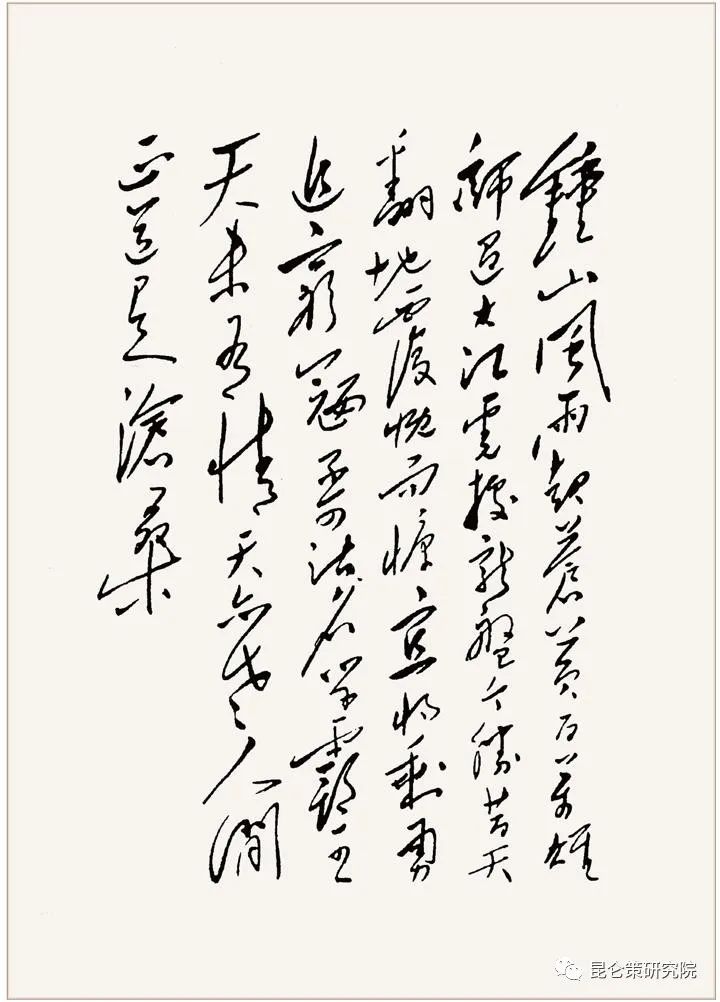 鐘山風雨起蒼黃百萬雄
師過大江虎據龍盤今勝昔天
翻地覆慨而慷宜将剩勇
追窮寇不可沽名学霸王
天未有情天亦老人間
正道是滄桑
昆仑策研究院